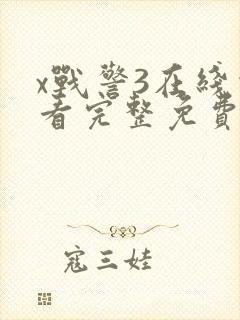 x戰警3在綫
看完整免費
寇三娃